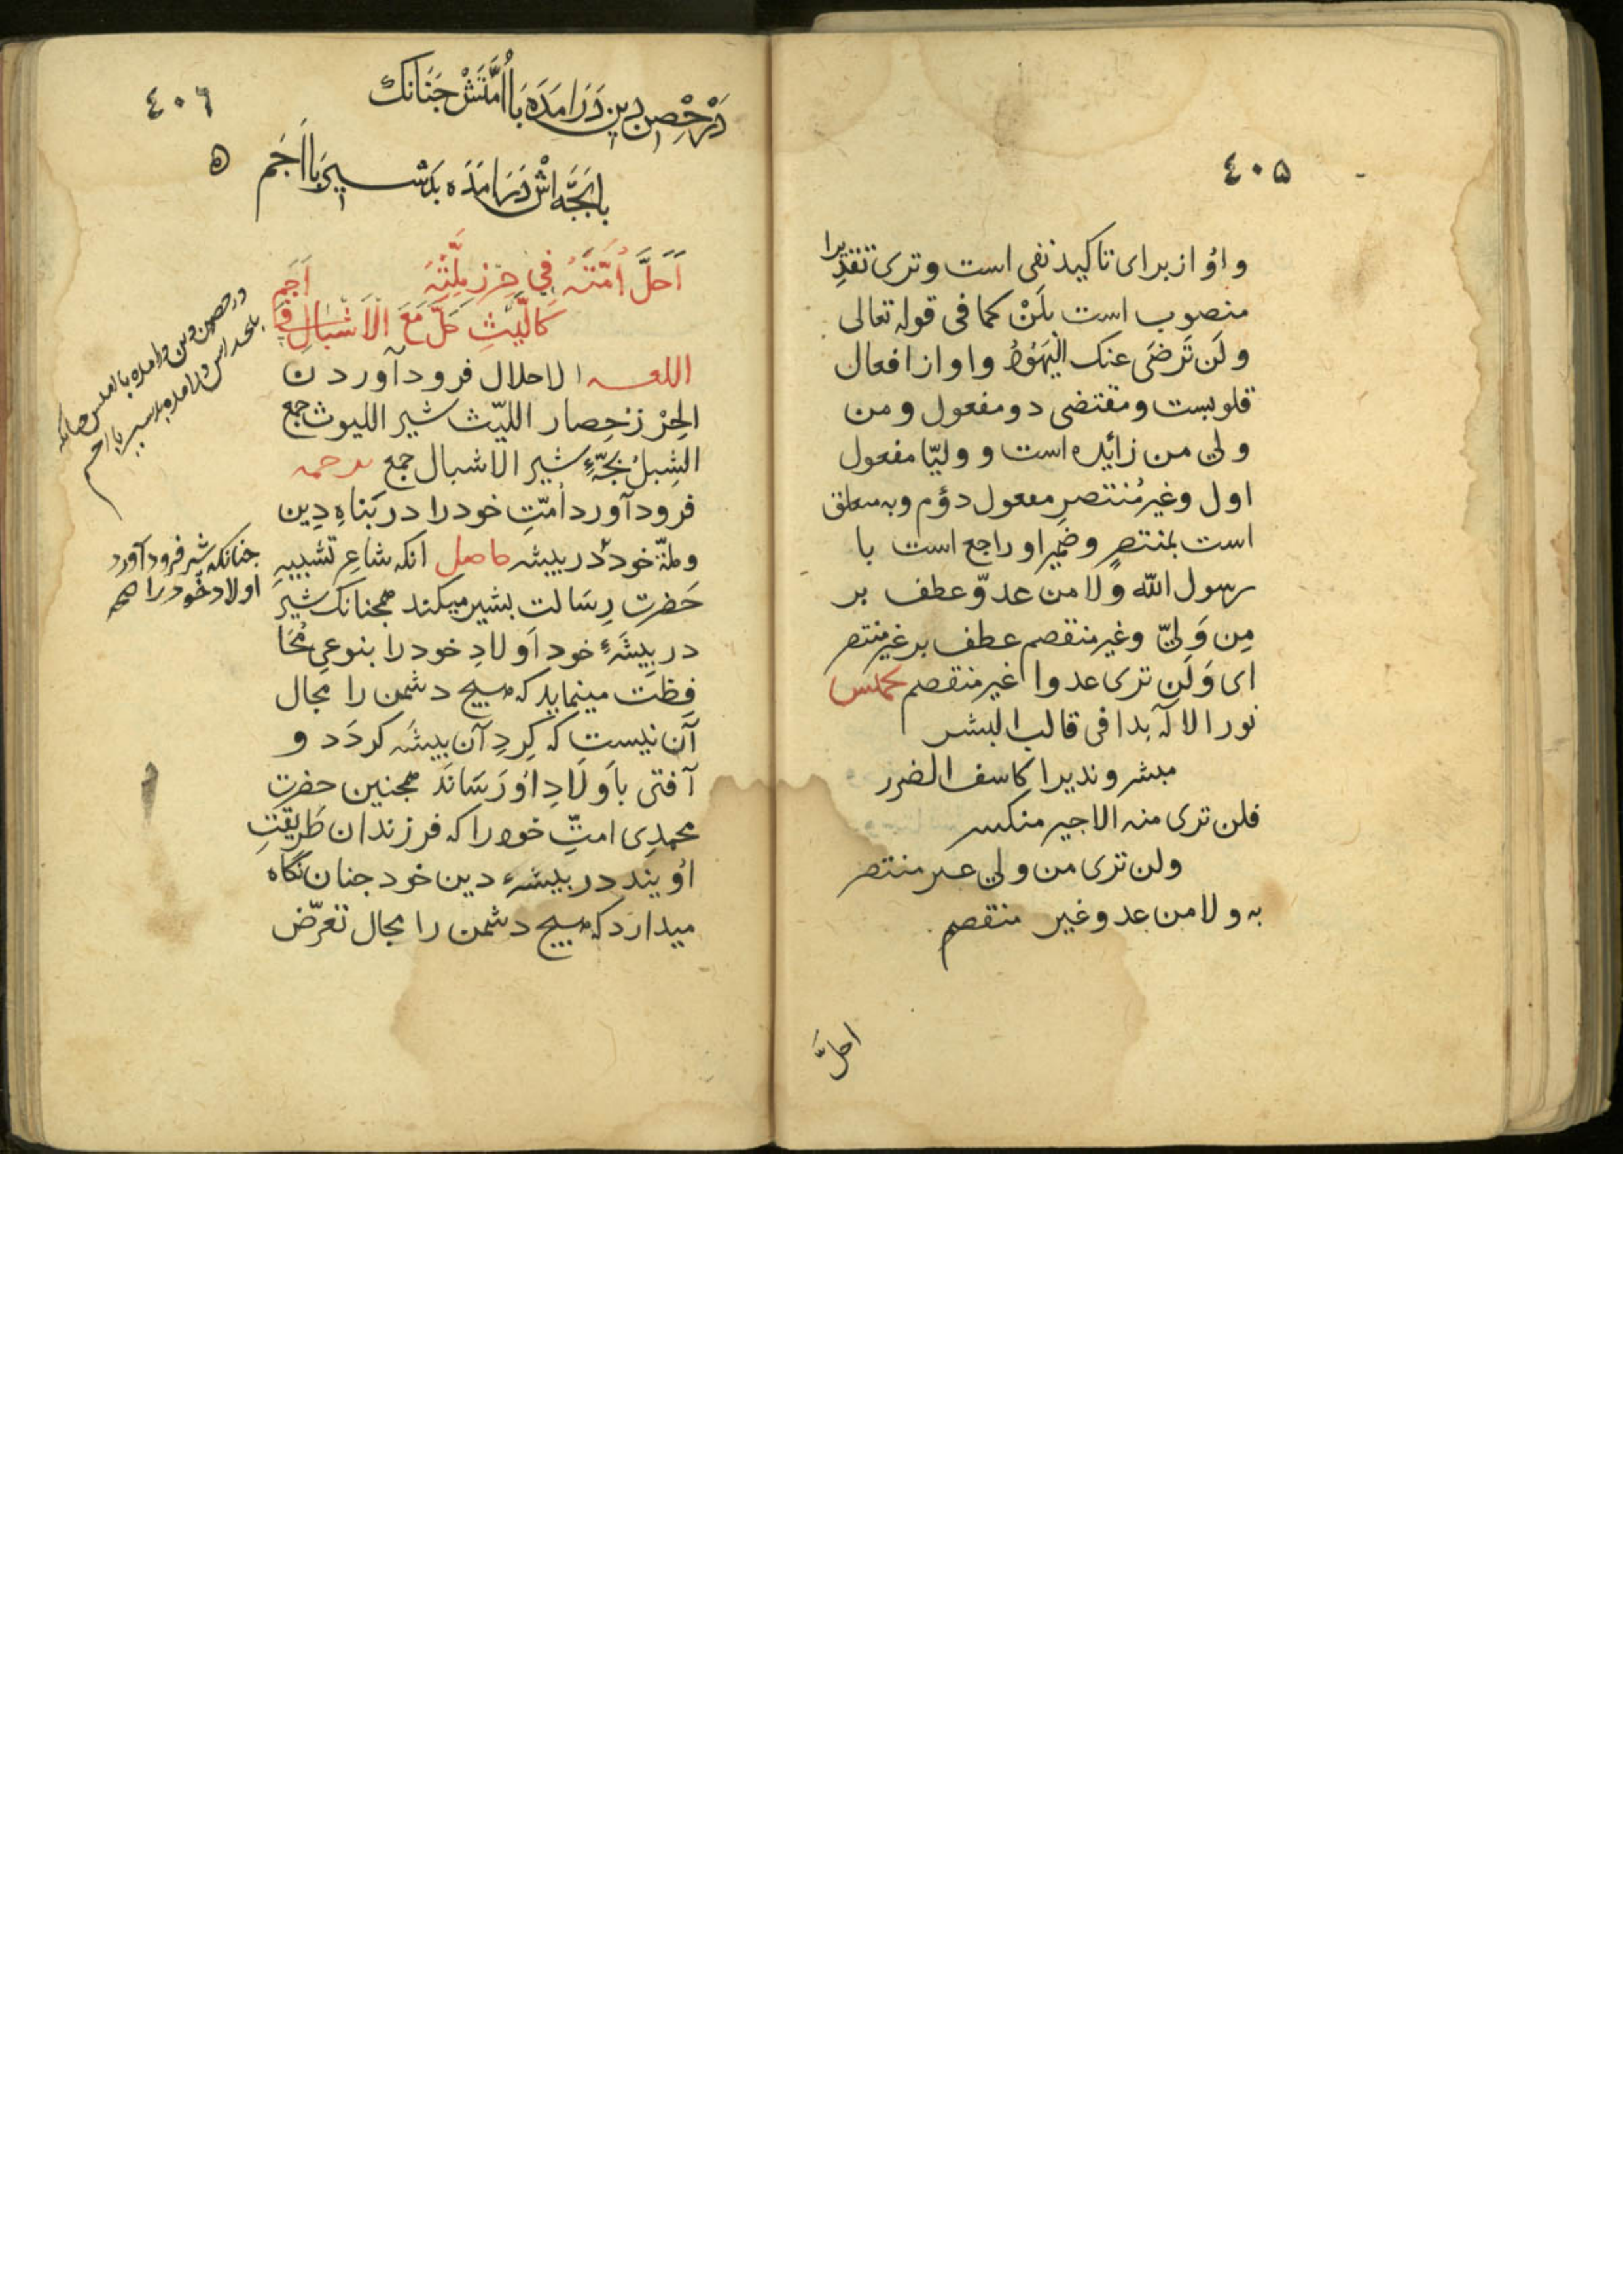 ٤٠٥
واوُ از برای تاکید نفی است و تری تقدیرا
منصوب است بلَنْ کما فی قوله تعالی
و لَن تَرضَی عنک الْیَهُودُ و او از افعال
قلوبست و مقتضی دو مفعول و من
ولی من زائده است و ولیّا مفعول
اول وغیرُ مُنتصرِ مفعول دوُم و به متعلق
است بمنتصرٍ و ضمیر او راجع است با
رسول اللّه و لا من عدوّ عطف بر
مِن وَلِیّ وغیر منقصم عطف بر غیر منتصر
ای وَلَن تری عدوا غیر منقصم
نور الاله بدا فی قالب البشر
مبشر و ندیرا کاسف الضرر
فلن تری منه الا جیر منکسر
ولن تری من ولی غیر منتصر
به و لا من عدو غیر منقصم
احلَّ
٤٠٦
دَرْحِصْنِ دِینْ دَرَامَدَه بَا اُمَّتَشْ چَنَانکْ
بابَچَّه اَشْ دَرَامَدَه بَدَشْ شیر با اَجَم
٥
اَحَلَّ اُمَّتَهُ فِی حِرْزِ مِلَّتِهِ
کَالَّلیْثِ حَلَّ مَعَ الْاَشْبَالِ فِی اَجَمِ
اللغه الاحلال فرود آوردن
الحِرْز حِصار اللیّث شیر اللیوث جمع
الشِبلُ بچّهٔ شیر الاشبال جمع ترجمه
فرود آورد اُمّتِ خود را در پَناهِ دِین
وملّة خود در بیشه حاصل انکه شاعِر تشبیهِ
حَضرتِ رِسَالت بشیر میکند همچنانک شیر
در بِیشَهٔ خود اَولادِ خود را بنوعی مُحَا
فِظَت مینماید که هیچ دشمن را مجال
آن نیست که کِردِ آن بیشَه کردَد و
آفتی باَولَادِ اوُ رَسَانَد همچنین حضرت
محمدِی امتِّ خود را که فرزندان طَرِیقتِ
اوُیند در بیشهٔ دین خود چنان نگاه
میدارد که هیچ دشمن را مجال تعرّض
در حصن دین درامده با امتش چنانکه
با بچه اش درامده بد شیر با اجم
چنانکه شیر فرود آورد
اولاد خود را صح